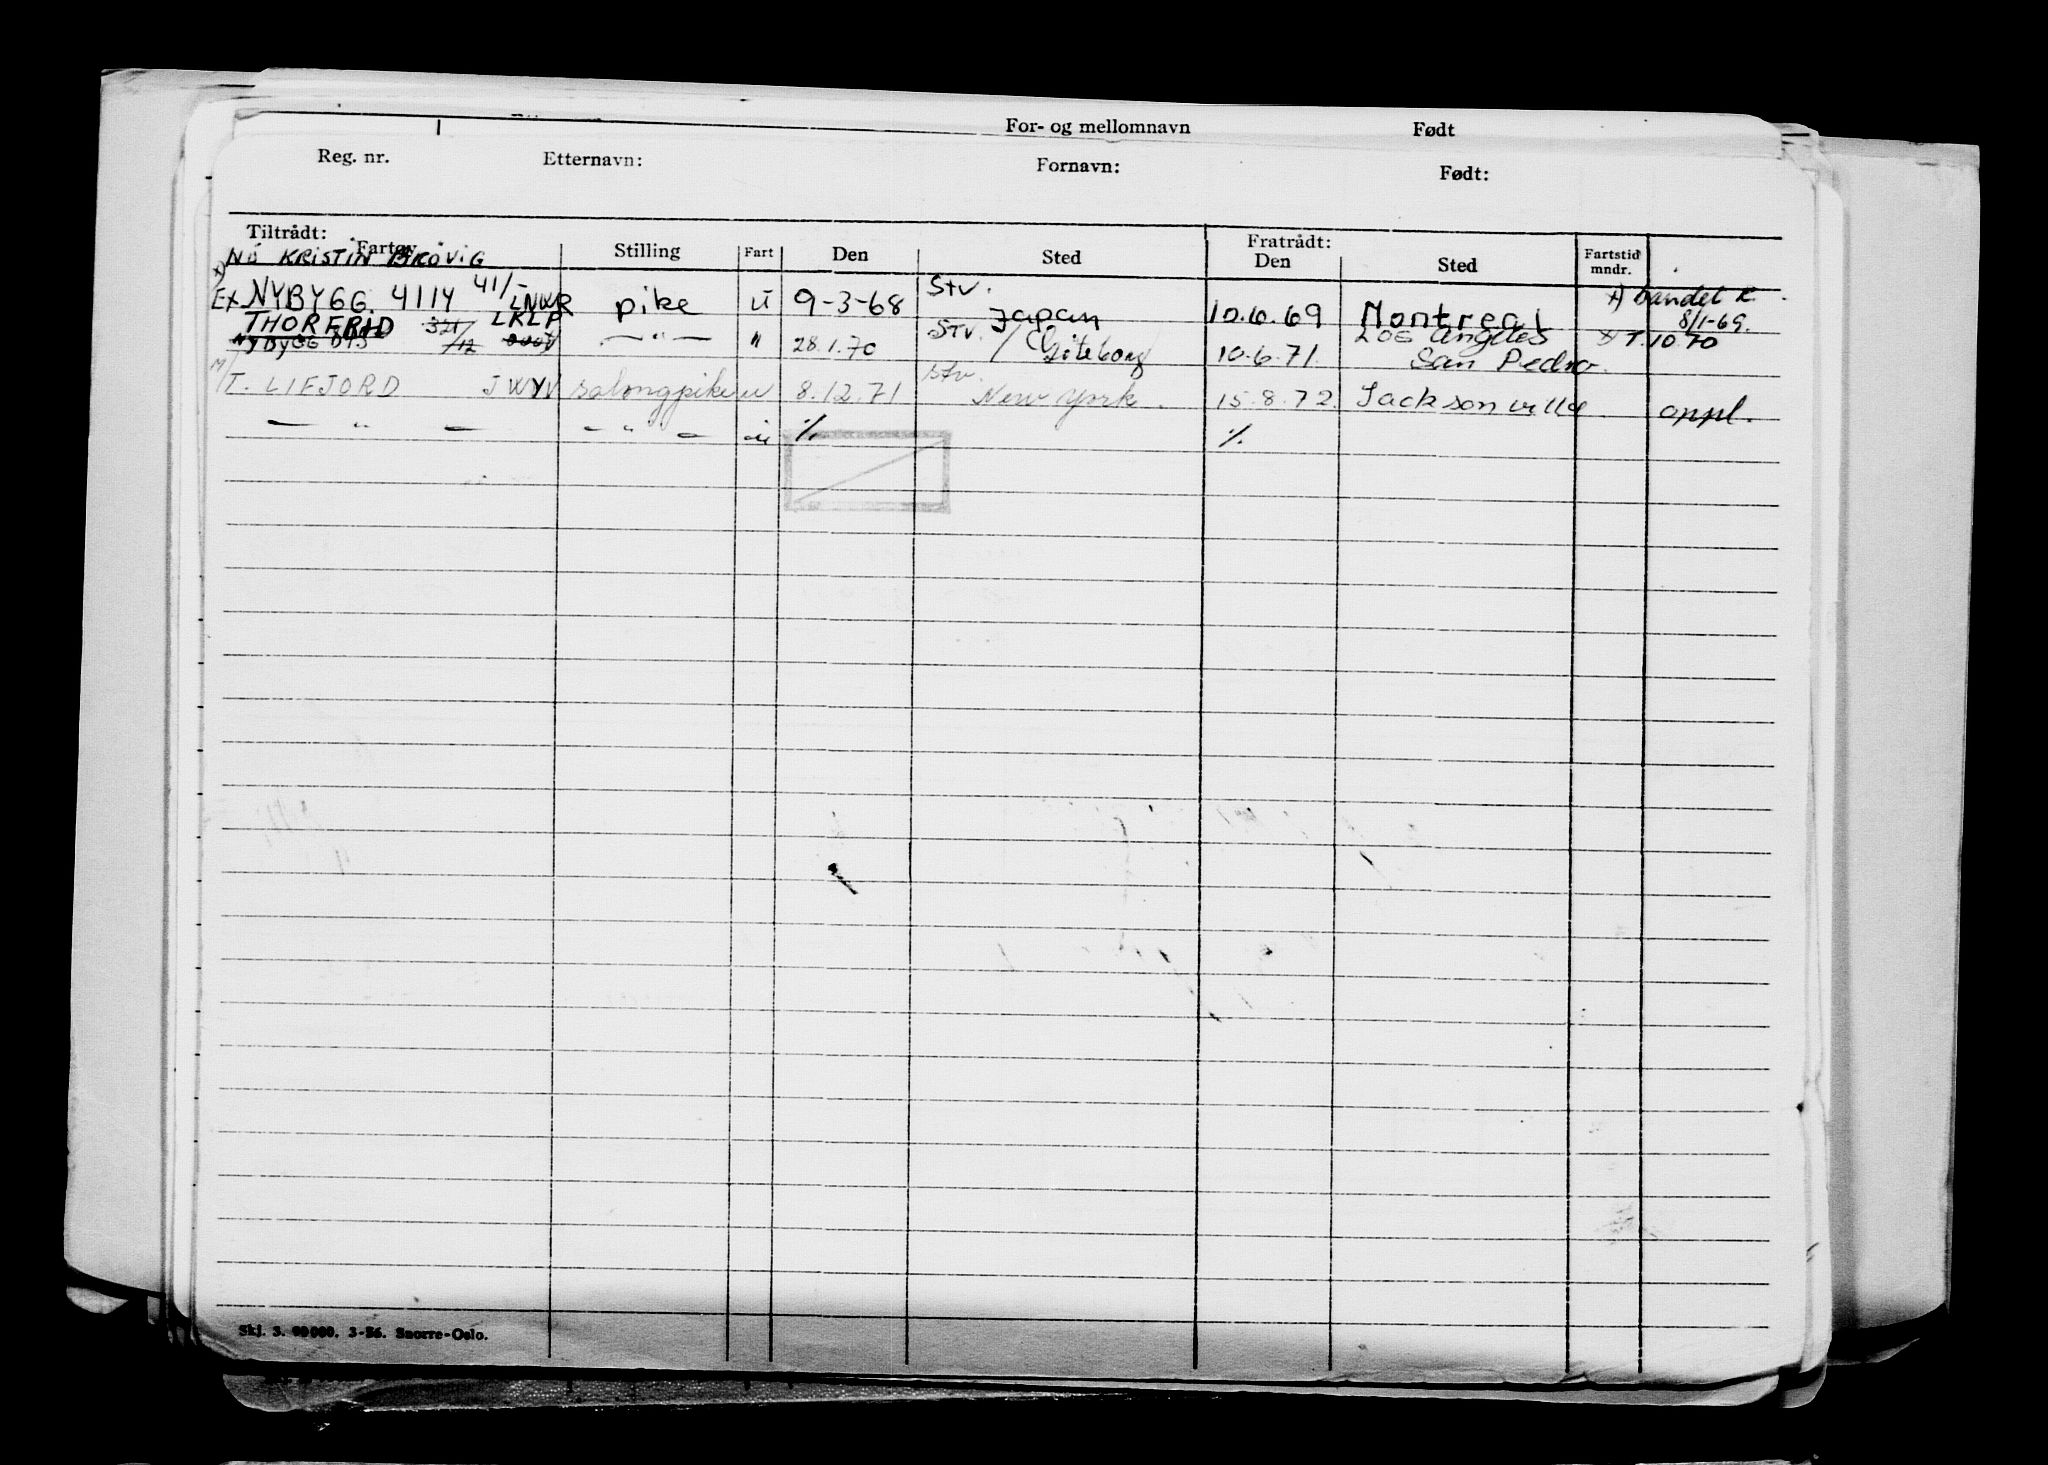 For- og mellomnavn Født
Reg. nr. Etternavn: Fornavn: Født:
Tiltrådt: Fratrådt:
Fartøy Stilling Fart Den Sted Den Sted Fartstid mndr.
x) NÅ KRISTIN BRØVIG
EX. NYBYGG. 4114 41/- LNWR pike u 9-3-68 Stv. Japan 10.6.69 Montreal x) bandet K. 8/1-69.
THORFRID LKLP — " — " 28.1.70 Stv. / Göteborg 10.6.71 Los Angles San Pedro. x T.10.70
NyByGG
M/T. LIEFJORD JWYV salongpike u 8.12.71 stv. New York. 15.8.72. Jacksonville oppl.
— " — — " — % %
Skj. 3. 3-56. Snorre-Oslo.